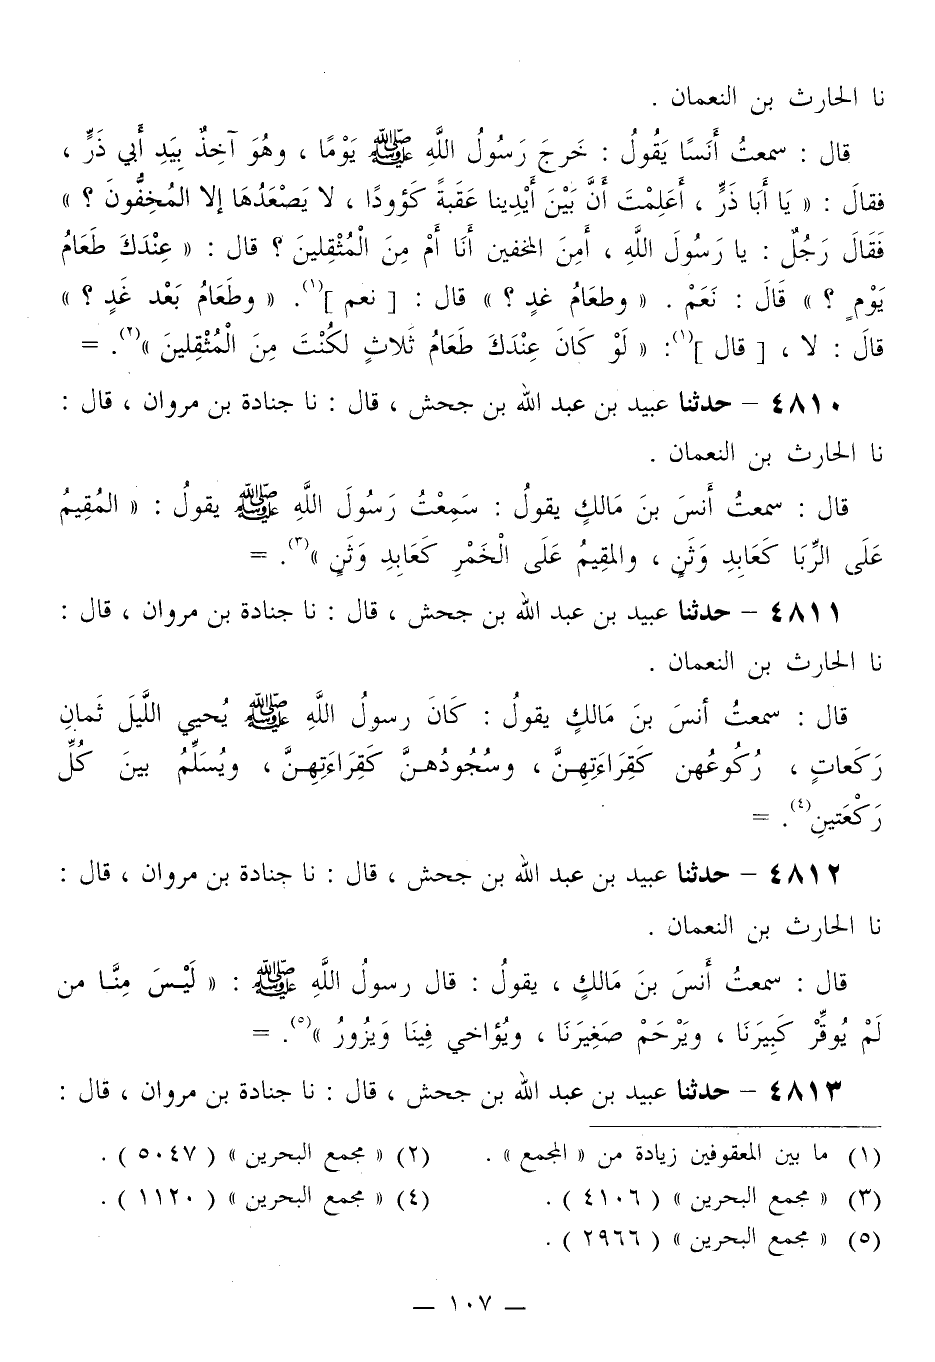 نا الحارث بن النعمان .
قال : سمعتُ أَنَسًا يَقُولُ : خَرجَ رَسُولُ اللَّهِ ﷺ يَوْمًا ، وهُوَ آخِذٌ بِيَدِ أَبي ذَرٍّ ،
فقالَ : « يَا أَبَا ذَرٍّ ، أَعَلِمْتَ أَنَّ بَيْنَ أَيْدِينا عَقَبةً كَؤودًا ، لا يَصْعَدُهَا إلا المُخِفُّونَ ؟ »
فَقَالَ رَجُلٌ : يا رَسُولَ اللَّهِ ، أَمِنَ المخفين أَنَا أَمْ مِنَ الْمُثْقِلينَ ؟ قال : « عِنْدَكَ طَعَامُ
يَوْمٍ ؟ » قَالَ : نَعَمْ . « وطعَامُ غدٍ ؟ » قال : [ نعم ](١). « وطَعَامُ بَعْد غَدٍ ؟ »
قالَ : لا ، [ قال ](١): « لَوْ كَانَ عِنْدَكَ طَعَامُ ثَلاثٍ لكُنْتَ مِنَ الْمُثْقِلينَ »(٢). =
٤٨١٠ – حدثنا عبيد بن عبد الله بن جحش ، قال : نا جنادة بن مروان ، قال :
نا الحارث بن النعمان .
قال : سمعتُ أَنسَ بنَ مَالكٍ يقولُ : سَمِعْتُ رَسُولَ اللَّهِ ﷺ يقولُ : « المُقِيمُ
عَلَى الرِّبَا كَعَابِدِ وَثَنٍ ، والمقِيمُ عَلَى الْخَمْرِ كَعَابِدِ وَثَنٍ »(٣). =
٤٨١١ – حدثنا عبيد بن عبد الله بن جحش ، قال : نا جنادة بن مروان ، قال :
نا الحارث بن النعمان .
قال : سمعتُ أنسَ بنَ مَالكٍ يقولُ : كَانَ رسولُ اللَّهِ ﷺ يُحيي الليلَ ثَمانِ
رَكَعاتٍ ، رُكُوعُهن كَقِرَاءَتِهِنَّ ، وسُجُودُهنَّ كَقِرَاءَتِهِنَّ ، ويُسَلِّمُ بينَ كُلِّ
رَكْعَتينِ(٤). =
٤٨١٢ – حدثنا عبيد بن عبد الله بن جحش ، قال : نا جنادة بن مروان ، قال :
نا الحارث بن النعمان .
قال : سمعتُ أَنسَ بنَ مَالكٍ ، يقولُ : قال رسولُ اللَّهِ ﷺ : « لَيْسَ مِنَّا من
لَمْ يُوقِّرْ كَبِيرَنَا ، ويَرْحَمْ صَغِيرَنَا ، ويُؤاخي فِينَا وَيَزُورُ »(٥). =
٤٨١٣ – حدثنا عبيد بن عبد الله بن جحش ، قال : نا جنادة بن مروان ، قال :
(١) ما بين المعقوفين زيادة من « المجمع » . (٢) « مجمع البحرين » ( ٥٠٤٧ ) .
(٣) « مجمع البحرين » ( ٤١٠٦ ) . (٤) « مجمع البحرين » ( ١١٢٠ ) .
(٥) « مجمع البحرين » ( ٢٩٦٦ ) .
— ١٠٧ —